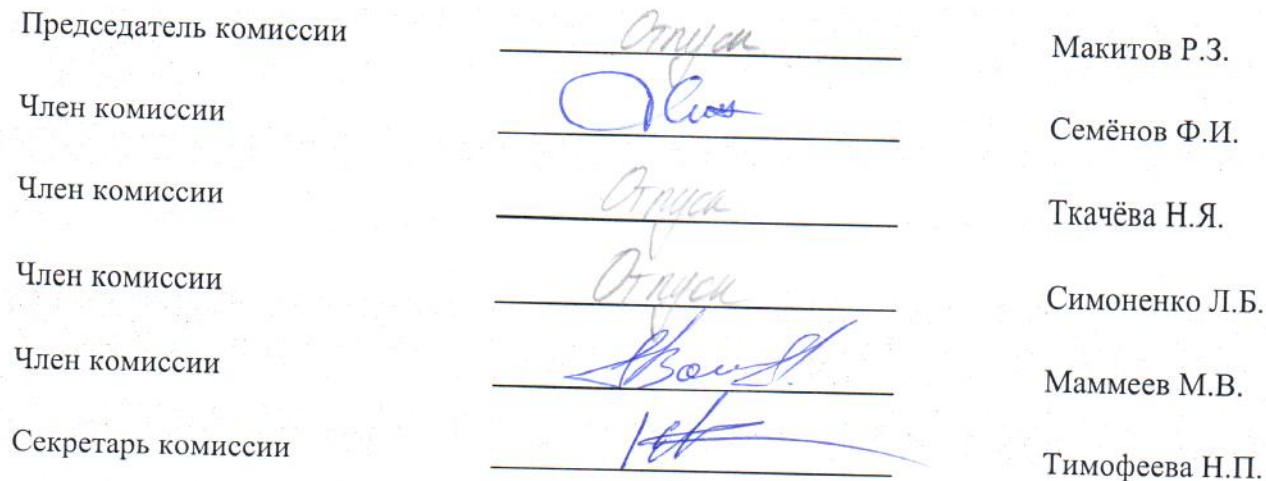 Председатель комиссии Отпуск Макитов Р.З.
Член комиссии Семёнов Ф.И.
Член комиссии Отпуск Ткачёва Н.Я.
Член комиссии Отпуск Симоненко Л.Б.
Член комиссии Маммеев М.В.
Секретарь комиссии Тимофеева Н.П.